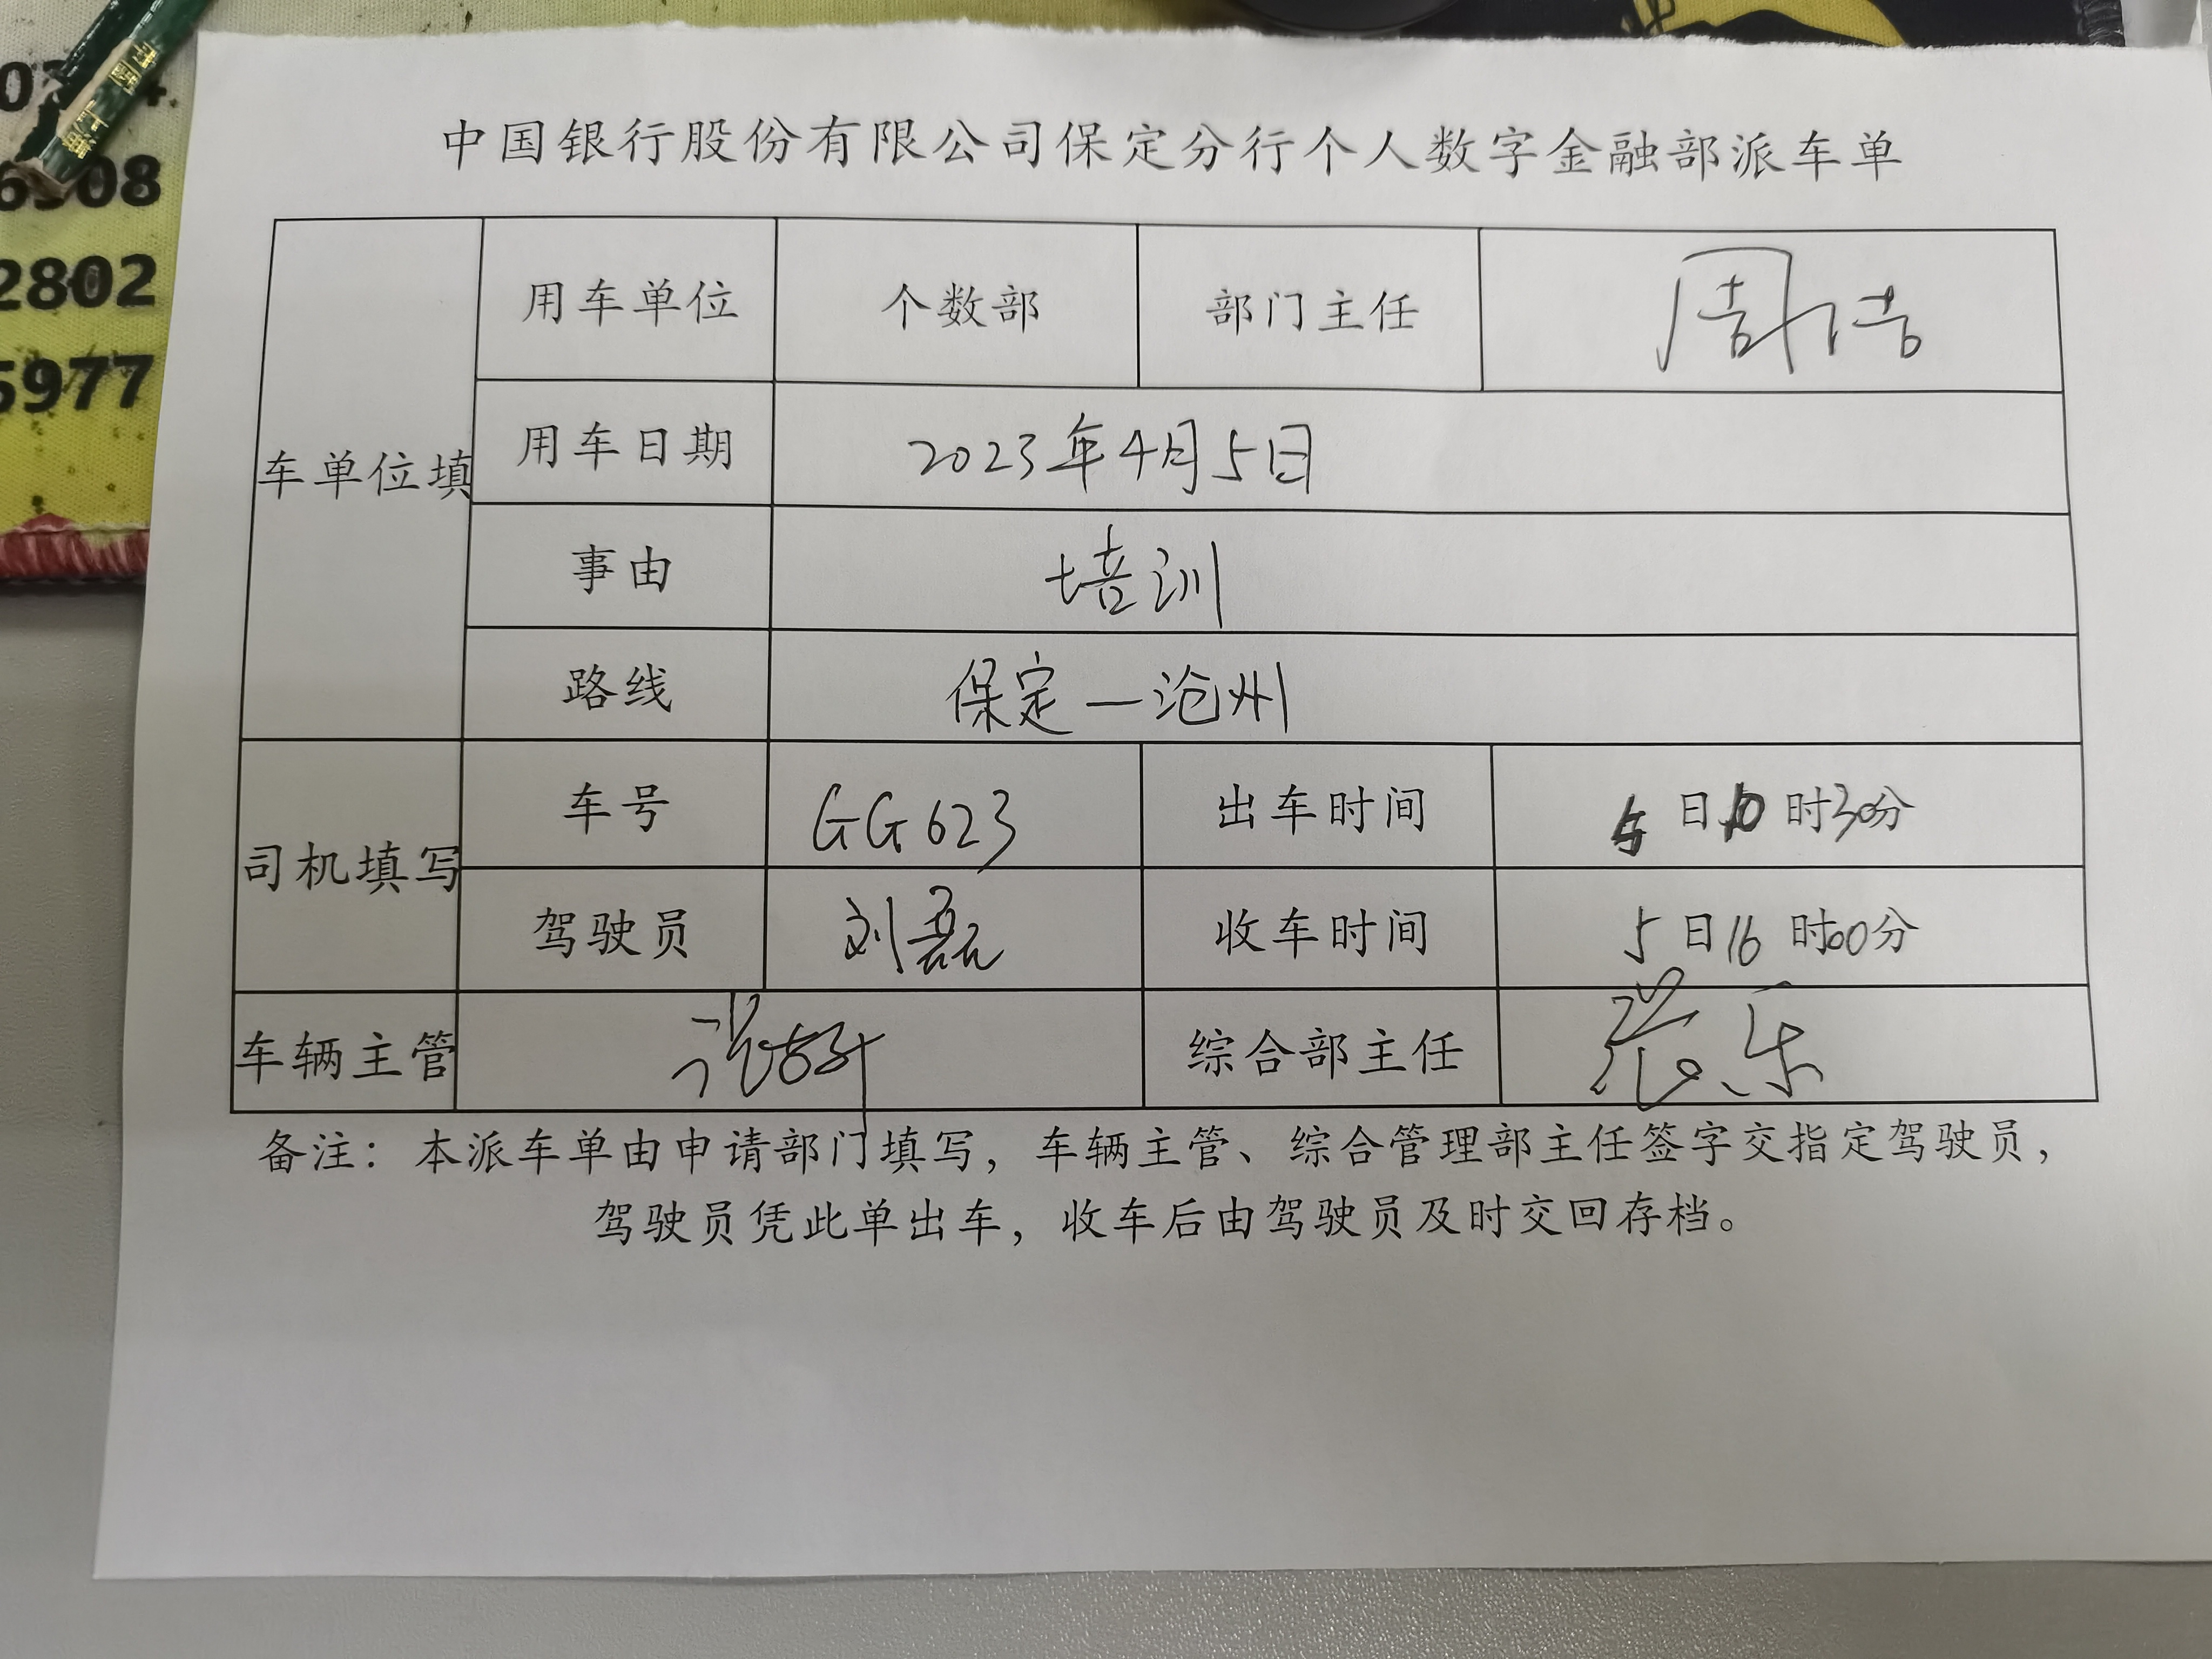 2802
5977
中国银行股份有限公司保定分行个人数字金融部派车单
用车单位 个数部 部门主任 周洁
车单位填
用车日期 2023年4月5日
事由 培训
路线 保定—沧州
司机填写
车号 GG623 出车时间 5日10时30分
驾驶员 刘磊 收车时间 5日16时00分
车辆主管 综合部主任
备注：本派车单由申请部门填写，车辆主管、综合管理部主任签字交指定驾驶员，
驾驶员凭此单出车，收车后由驾驶员及时交回存档。